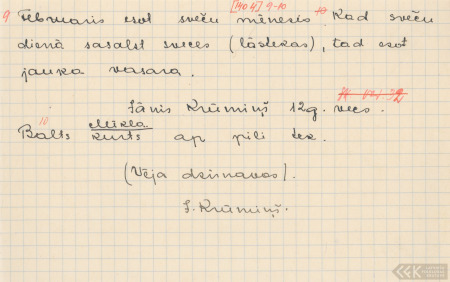 [1404] 9-10
9 Februaris esot sveču mēnesis 10 Kad sveču
dienā sasalst sveces (lāstekas), tad esot
jauka vasara.
Jānis Krūmiņš 12g. vecs.
10 Mikla
Balts kurts ap pili tek.
(Vēja dzirnavas).
J. Krūmiņš.